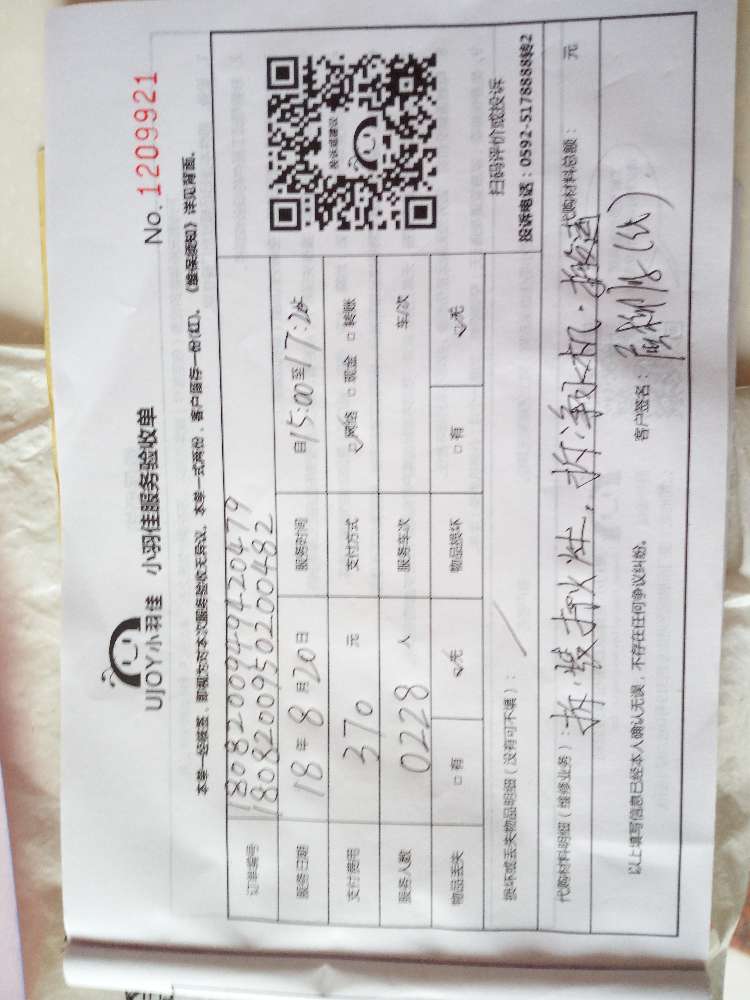 UJOY小羽佳 小羽佳服务验收单
No. 1209921
本单一经续签，即视为对本次服务验收无异议。本单一式两份，客户留存一份(红)。《维保须知》详见背面。
订单编号 180820094942047９
180820095020０482
服务日期 18年8月20日 服务时间 自15:00至17:20
支付费用 370 元 支付方式 ☑网络 □现金 □转账
服务人数 0228 人 服务车次 车/次
物品丢失 □有 ☑无 物品损坏 □有 ☑无
投诉或建议
扫码评价或投诉
投诉电话：0592-5178888转2
损坏或丢失物品明细（没有可不填）：
代购材料明细（维修业务）：拆.装 灶，拆净水机. 代购材料总额： 元
以上填写信息已经本人确认无误，不存在任何争议纠纷。 客户签名： (代)